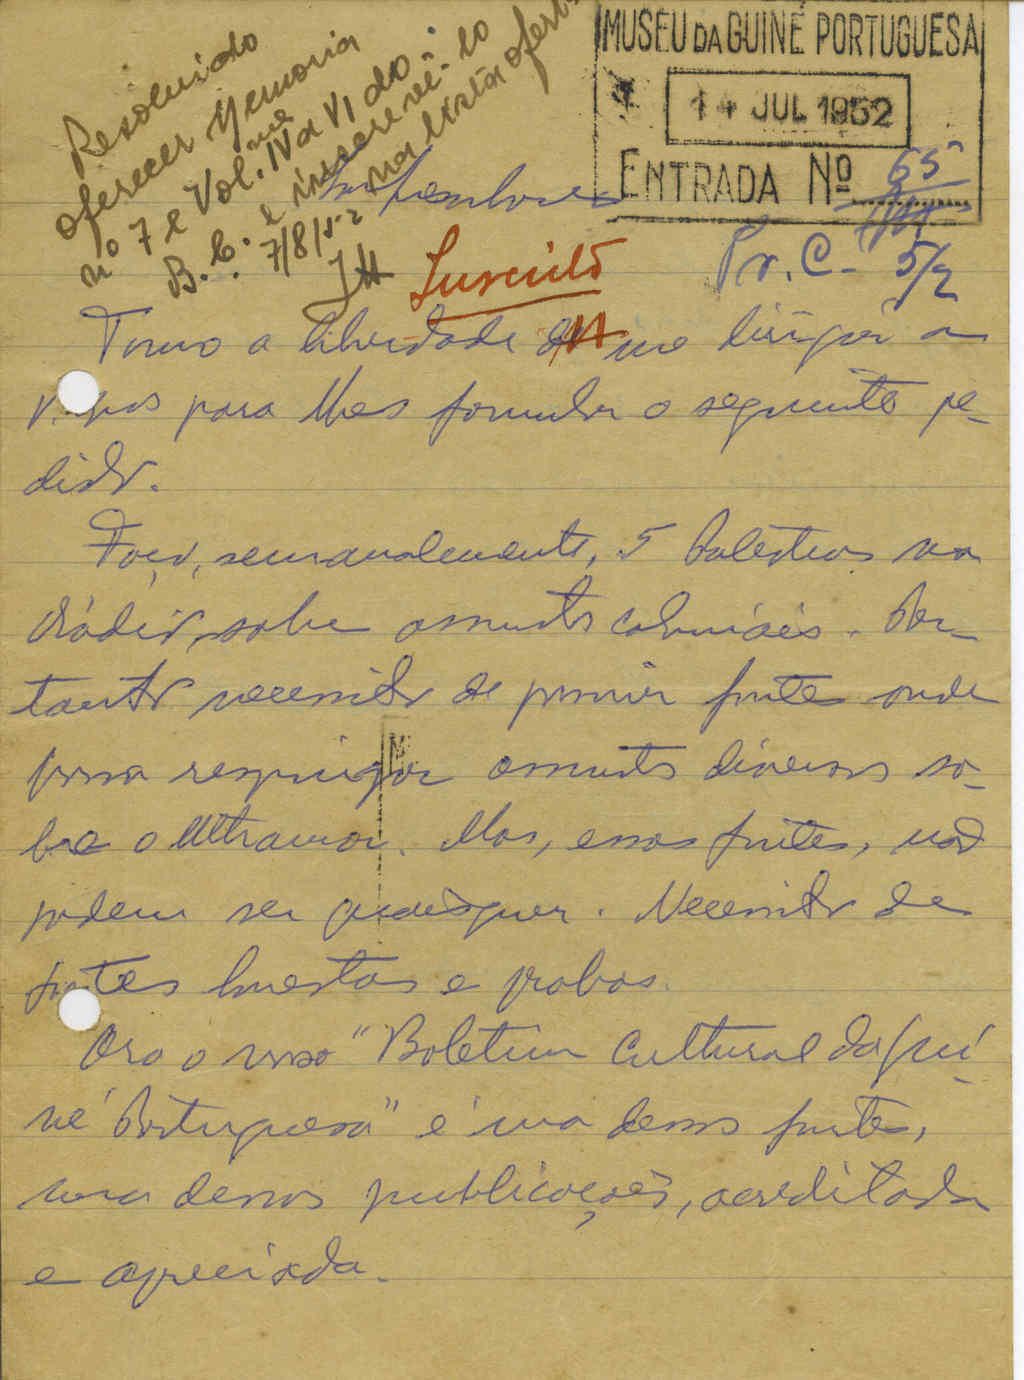 Resolvido
oferecer Memoria
nº 7 e Volume IV a VI do
B. C. e inscrevê-lo
7/8/52 na lista ofertas
MUSEU DA GUINÉ PORTUGUESA
14 JUL 1952
ENTRADA Nº 65
Pr. C- 5/2
Senhores
Tomo a liberdade de me dirigir a
vossos para lhes formular o seguinte pe-
dido.
Faço, semanalmente, 5 palestras na
rádio, sobre assuntos coloniais. Por-
tanto necessito de possuir fontes onde
possa respingar assuntos diversos so-
bre o Ultramar. Mas, essas fontes, não
podem ser quaisquer. Necessito de
fontes honestas e probas.
Ora o vosso "Boletim Cultural da Gui-
né Portuguesa" é uma dessas fontes,
uma dessas publicações, acreditada
e apreciada.